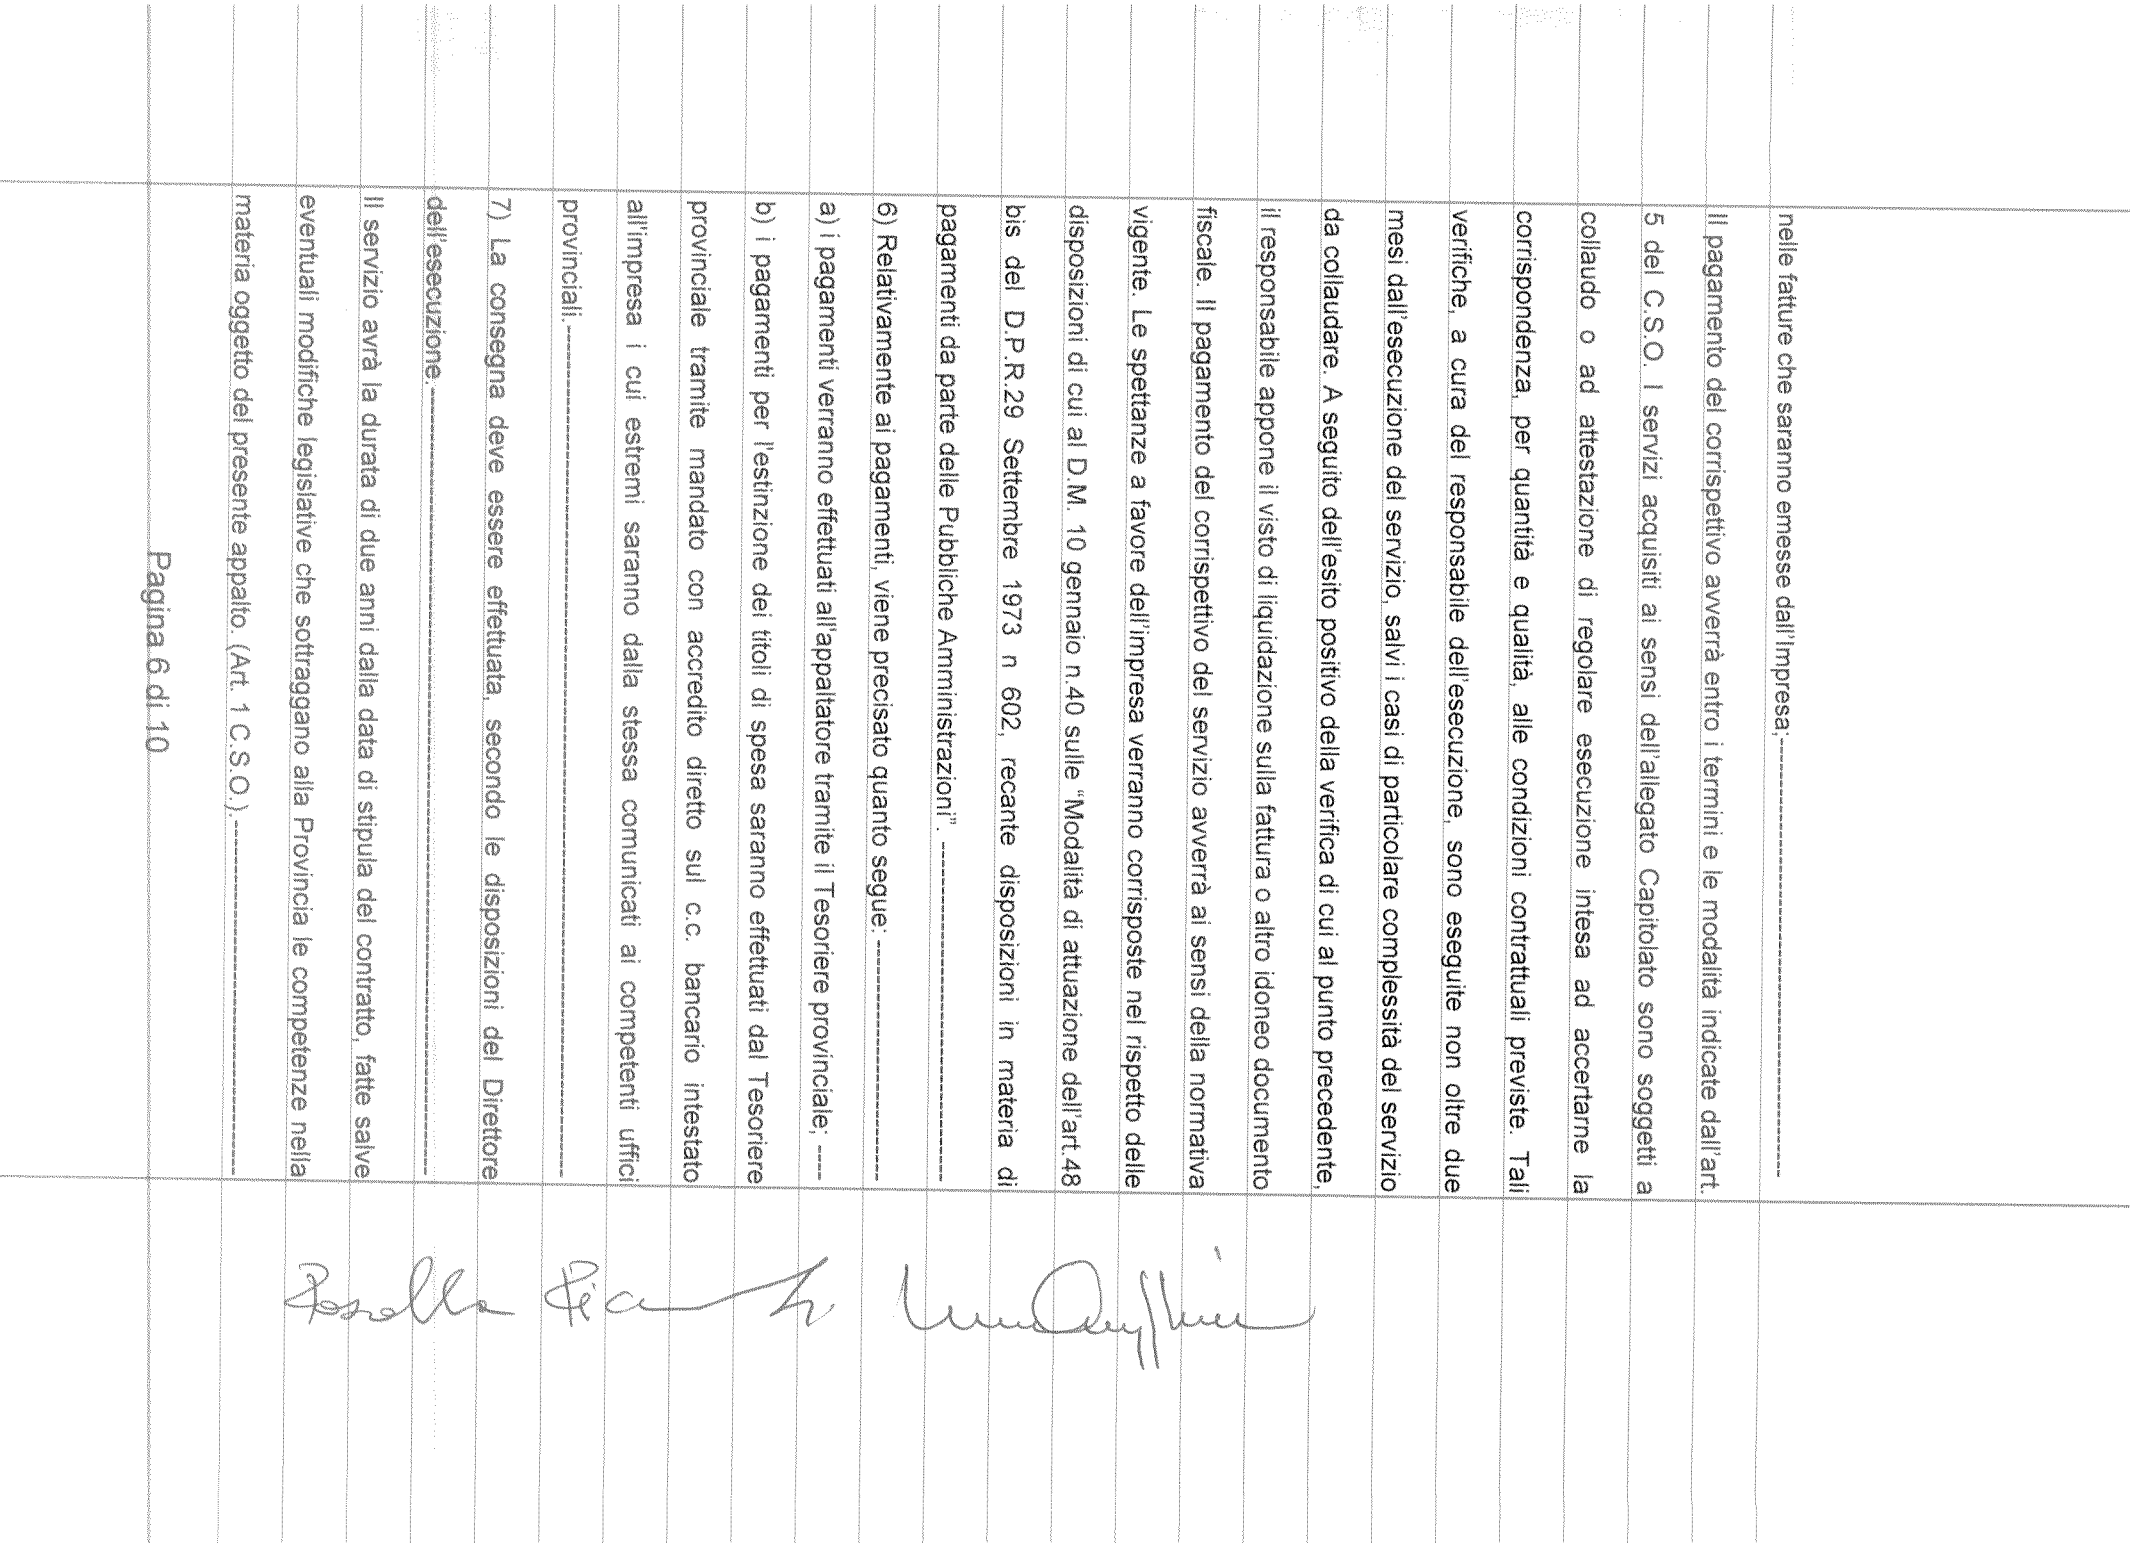 nelle fatture che saranno emesse dall'Impresa;------------------------------------------------
Il pagamento del corrispettivo avverrà entro i termini e le modalità indicate dall'art.
5 del C.S.O. I servizi acquisiti ai sensi dell'allegato Capitolato sono soggetti a
collaudo o ad attestazione di regolare esecuzione intesa ad accertarne la
corrispondenza, per quantità e qualità, alle condizioni contrattuali previste. Tali
verifiche, a cura del responsabile dell'esecuzione, sono eseguite non oltre due
mesi dall'esecuzione del servizio, salvi i casi di particolare complessità del servizio
da collaudare. A seguito dell'esito positivo della verifica di cui al punto precedente,
il responsabile appone il visto di liquidazione sulla fattura o altro idoneo documento
fiscale. Il pagamento del corrispettivo del servizio avverrà ai sensi della normativa
vigente. Le spettanze a favore dell'impresa verranno corrisposte nel rispetto delle
disposizioni di cui al D.M. 10 gennaio n.40 sulle “Modalità di attuazione dell'art.48
bis del D.P.R.29 Settembre 1973 n 602, recante disposizioni in materia di
pagamenti da parte delle Pubbliche Amministrazioni”. -------------------------------------
6) Relativamente ai pagamenti, viene precisato quanto segue: --------------------------
a) i pagamenti verranno effettuati all'appaltatore tramite il Tesoriere provinciale; ----
b) i pagamenti per l'estinzione dei titoli di spesa saranno effettuati dal Tesoriere
provinciale tramite mandato con accredito diretto sul c.c. bancario intestato
all'impresa i cui estremi saranno dalla stessa comunicati ai competenti uffici
provinciali.---------------------------------------------------------------------------------------------
7) La consegna deve essere effettuata, secondo le disposizioni del Direttore
dell'esecuzione.--------------------------------------------------------------------------------------
Il servizio avrà la durata di due anni dalla data di stipula del contratto, fatte salve
eventuali modifiche legislative che sottraggano alla Provincia le competenze nella
materia oggetto del presente appalto. (Art. 1 C.S.O.).--------------------------------------
Pagina 6 di 10
Rossella